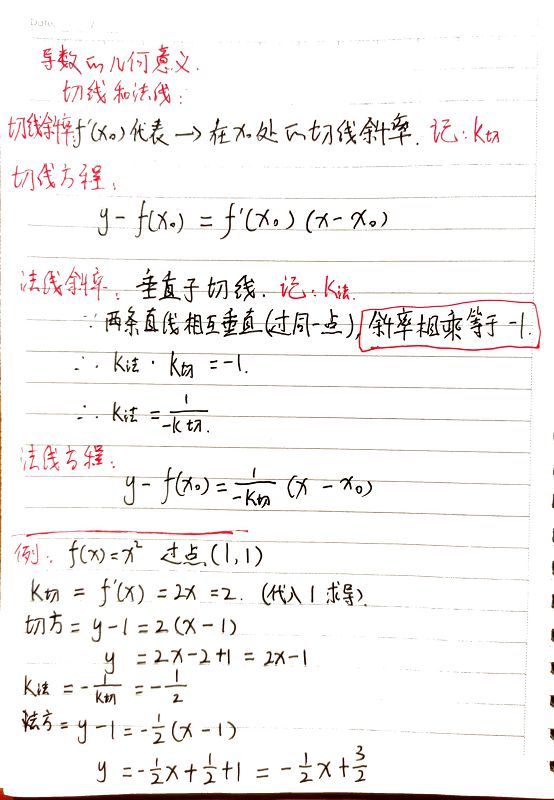 Date:
导数的几何意义.
切线和法线:
切线斜率: f'(x₀) 代表 → 在 x₀ 处的切线斜率. 记: K切
切线方程:
y - f(x₀) = f'(x₀) (x - x₀)
法线斜率: 垂直于切线. 记: K法.
∵ 两条直线相互垂直(过同一点), 斜率相乘等于 -1.
∴ K法 · K切 = -1.
∴ K法 = 1/-K切.
法线方程:
y - f(x₀) = 1/-K切 (x - x₀)
例: f(x) = x² 过点 (1,1)
K切 = f'(x) = 2x = 2. (代入 1 求导)
切方 = y - 1 = 2(x - 1)
y = 2x - 2 + 1 = 2x - 1
K法 = - 1/K切 = - 1/2
法方 = y - 1 = - 1/2 (x - 1)
y = - 1/2 x + 1/2 + 1 = - 1/2 x + 3/2